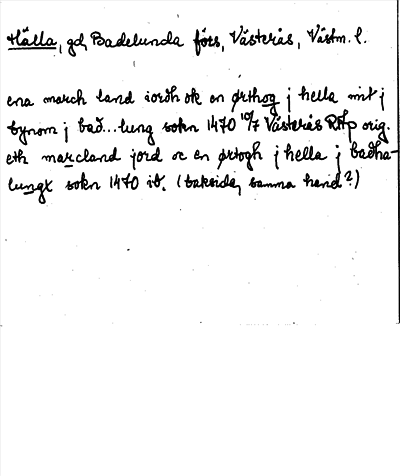 Hälla, gd, Badelunda förs, Västerås, Västm. l.
ena march land iordh ok en ørthog j hella mit j
bynom j bad...lung sokn 1470 10/7 Västerås RAp orig.
eth marcland jord oc en ørtogh j hella j badha-
lungx sokn 1470 ib. (baksida, samma hand?)